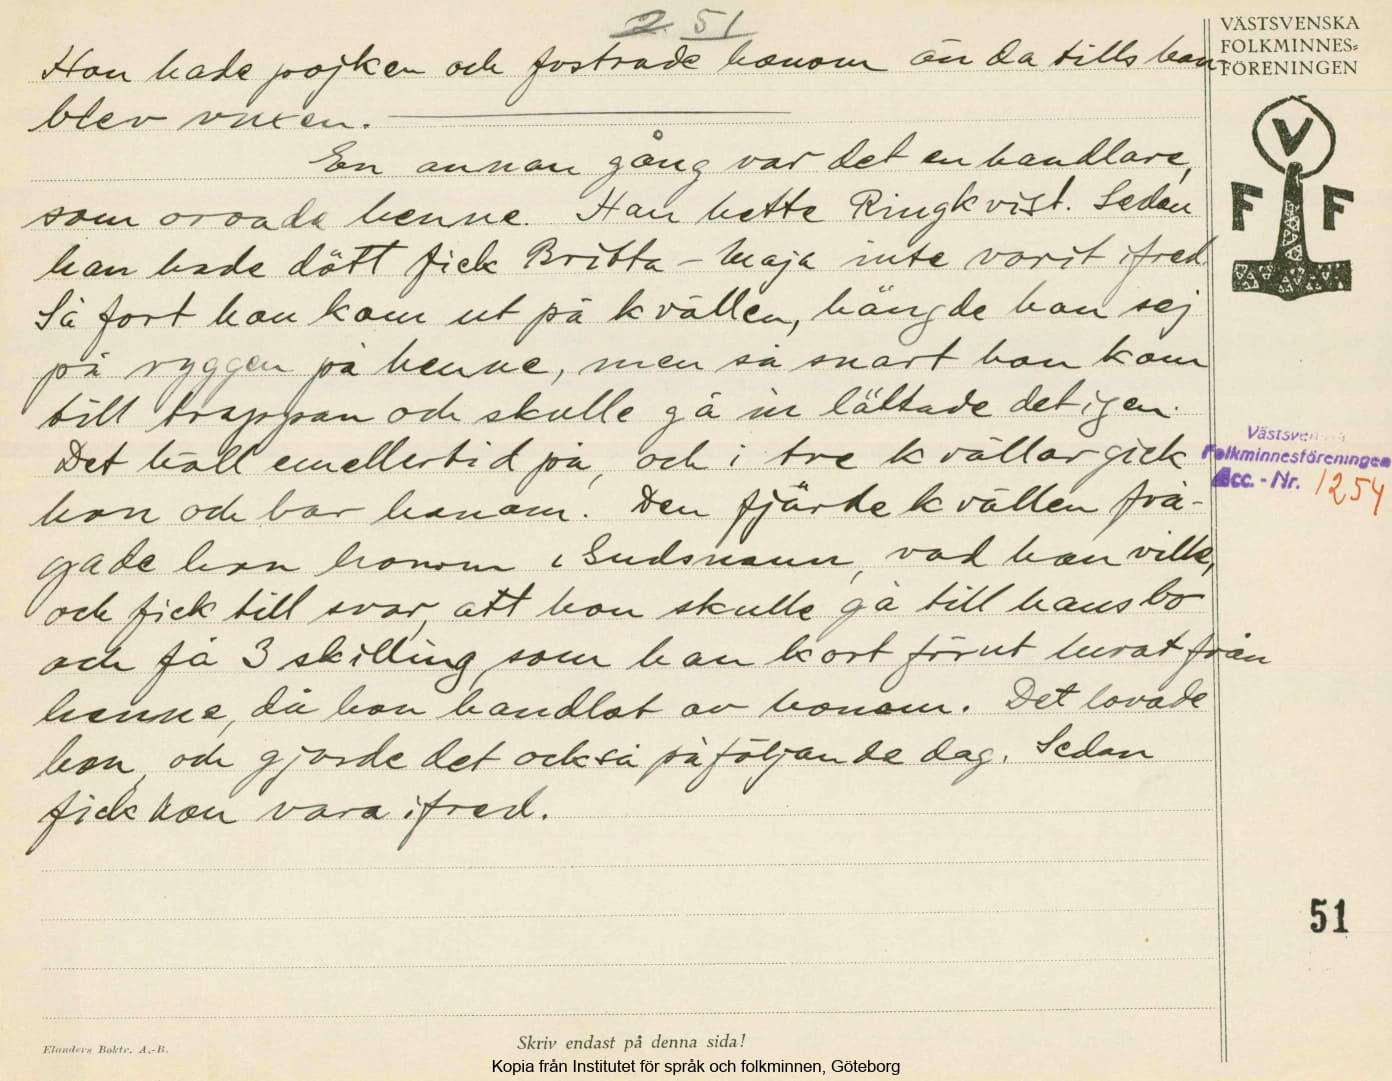 2. 51
VÄSTSVENSKA
FOLKMINNES=
FÖRENINGEN
Hon hade pojken och fostrade honom än da tills han
blev vuxen.
En annan gång var det en handlare,
som oroade henne. Han hette Ringkvist. Sedan
han hade dött fick Britta - Maja inte varit ifred.
Så fort hon kom ut på kvällen, hängde han sej
på ryggen på henne, men så snart hon kom
till trappan och skulle gå in lättade det igen.
Det höll emellertid på, och i tre kvällar gick
hon och bar honom. Den fjärde kvällen frå-
gade hon honom i Gudsnamn, vad han ville,
och fick till svar, att hon skulle gå till hans bo
och få 3 skilling, som han kort förut lurat från
henne, då hon handlat av honom. Det lovade
hon, och gjorde det också påföljande dag. Sedan
fick hon vara ifred.
V
F F
Västsvenska
Folkminnesföreningen
Acc. - Nr. 1254
51
Elanders Boktr. A.-B.
Skriv endast på denna sida!
Kopia från Institutet för språk och folkminnen, Göteborg